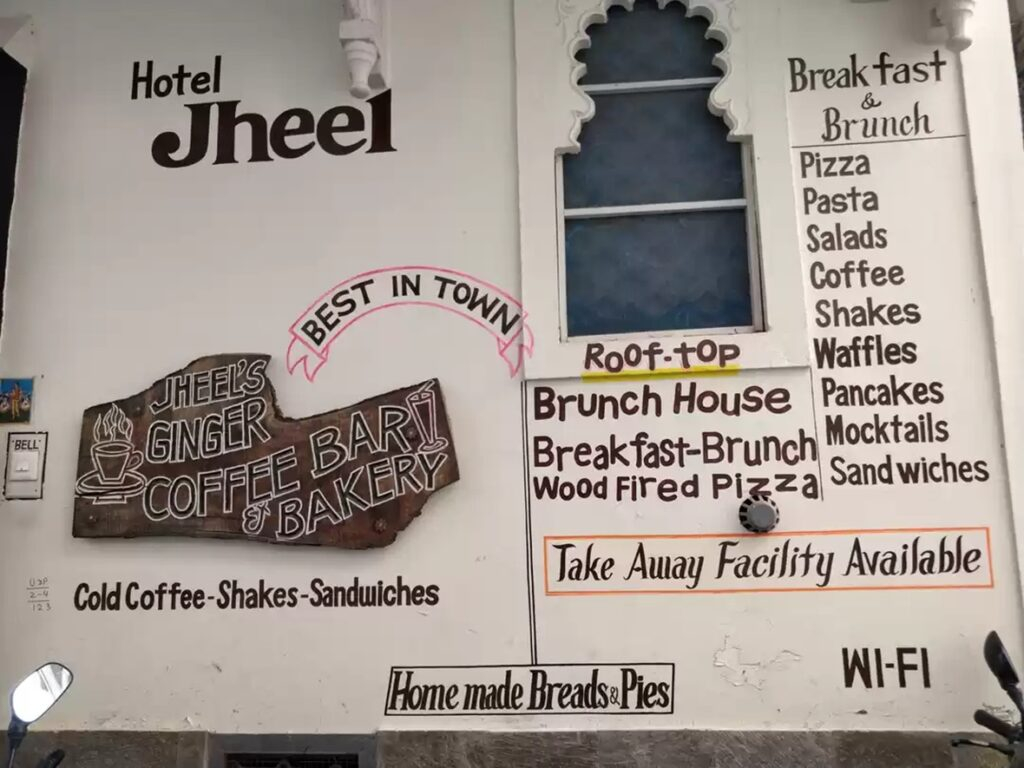 Hotel
Jheel
BEST IN TOWN
JHEEL'S
GINGER
COFFEE BAR
& BAKERY
"BELL"
Cold Coffee-Shakes-Sandwiches
Home made Breads & Pies
Roof-top
Brunch House
Breakfast-Brunch
Wood Fired Pizza
Breakfast
&
Brunch
Pizza
Pasta
Salads
Coffee
Shakes
Waffles
Pancakes
Mocktails
Sandwiches
Take Away Facility Available
WI-FI